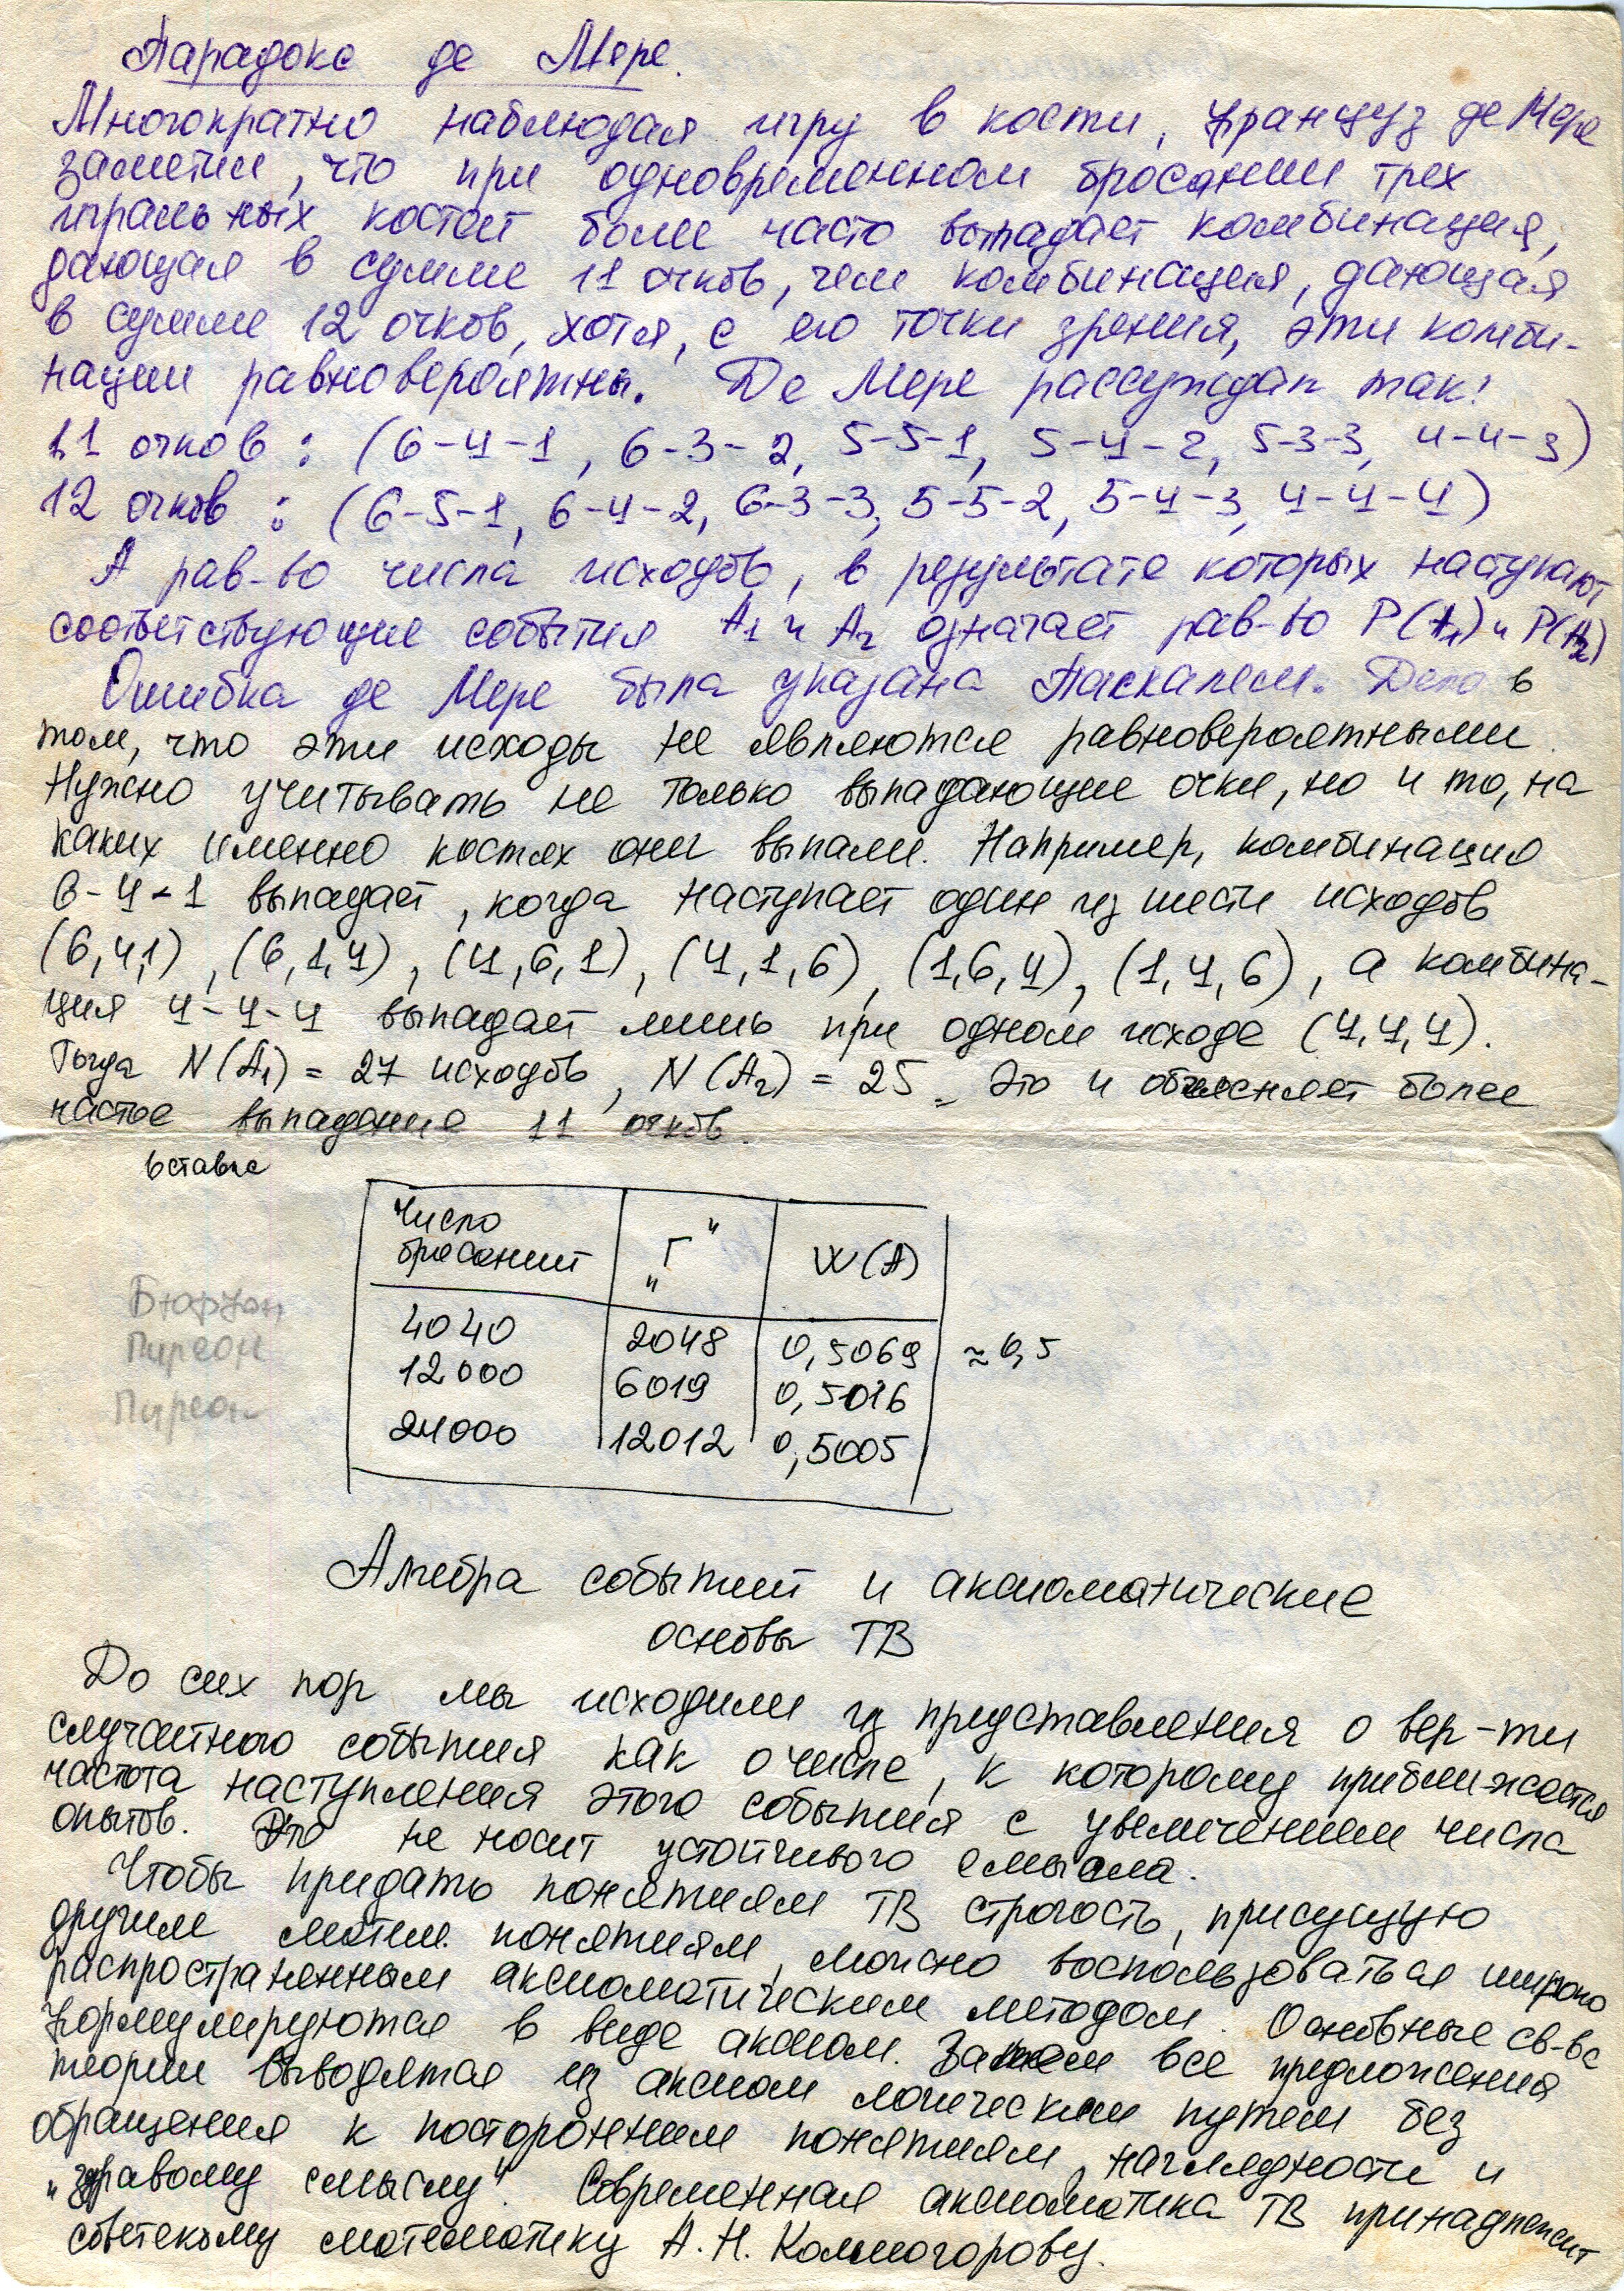 Парадокс де Мере.
Многократно наблюдая игру в кости, француз де Мере
заметил, что при одновременном бросании трех
игральных костей более часто выпадает комбинация,
дающая в сумме 11 очков, чем комбинация, дающая
в сумме 12 очков, хотя, с его точки зрения, эти комби-
нации равновероятны. Де Мере рассуждал так:
11 очков : (6-4-1, 6-3-2, 5-5-1, 5-4-2, 5-3-3, 4-4-3)
12 очков : (6-5-1, 6-4-2, 6-3-3, 5-5-2, 5-4-3, 4-4-4)
А рав-во числа исходов, в результате которых наступают
соответствующие события A₁ и A₂ означает рав-во P(A₁) и P(A₂)
Ошибка де Мере была указана Паскалем. Дело в
том, что эти исходы не являются равновероятными.
Нужно учитывать не только выпадающие очки, но и то, на
каких именно костях они выпали. Например, комбинация
6-4-1 выпадает, когда наступает один из шести исходов
(6,4,1), (6,1,4), (4,6,1), (4,1,6), (1,6,4), (1,4,6), а комбина-
ция 4-4-4 выпадает лишь при одном исходе (4,4,4).
Тогда N(A₁) = 27 исходов, N(A₂) = 25. Это и объясняет более
частое выпадение 11 очков.
вставка
Число бросаний „Г“ W(A)
Бюффон 4040 2048 0,5069 ≈ 0,5
Пирсон 12000 6019 0,5016
Пирсон 24000 12012 0,5005
Алгебра событий и аксиоматические
основы ТВ
До сих пор мы исходили из представления о вер-ти
случайного события как о числе, к которому приближается
частота наступления этого события с увеличением числа
опытов. Это не носит устойчивого смысла.
Чтобы придать понятиям ТВ строгость, присущую
другим матем. понятиям, можно воспользоваться широко
распространенным аксиоматическим методом. Основные св-ва
формулируются в виде аксиом. Затем все предложения
теории выводятся из аксиом логическим путем без
обращения к посторонним понятиям, наглядности и
„здравому смыслу“. Современная аксиоматика ТВ принадлежит
советскому математику А. Н. Колмогорову.